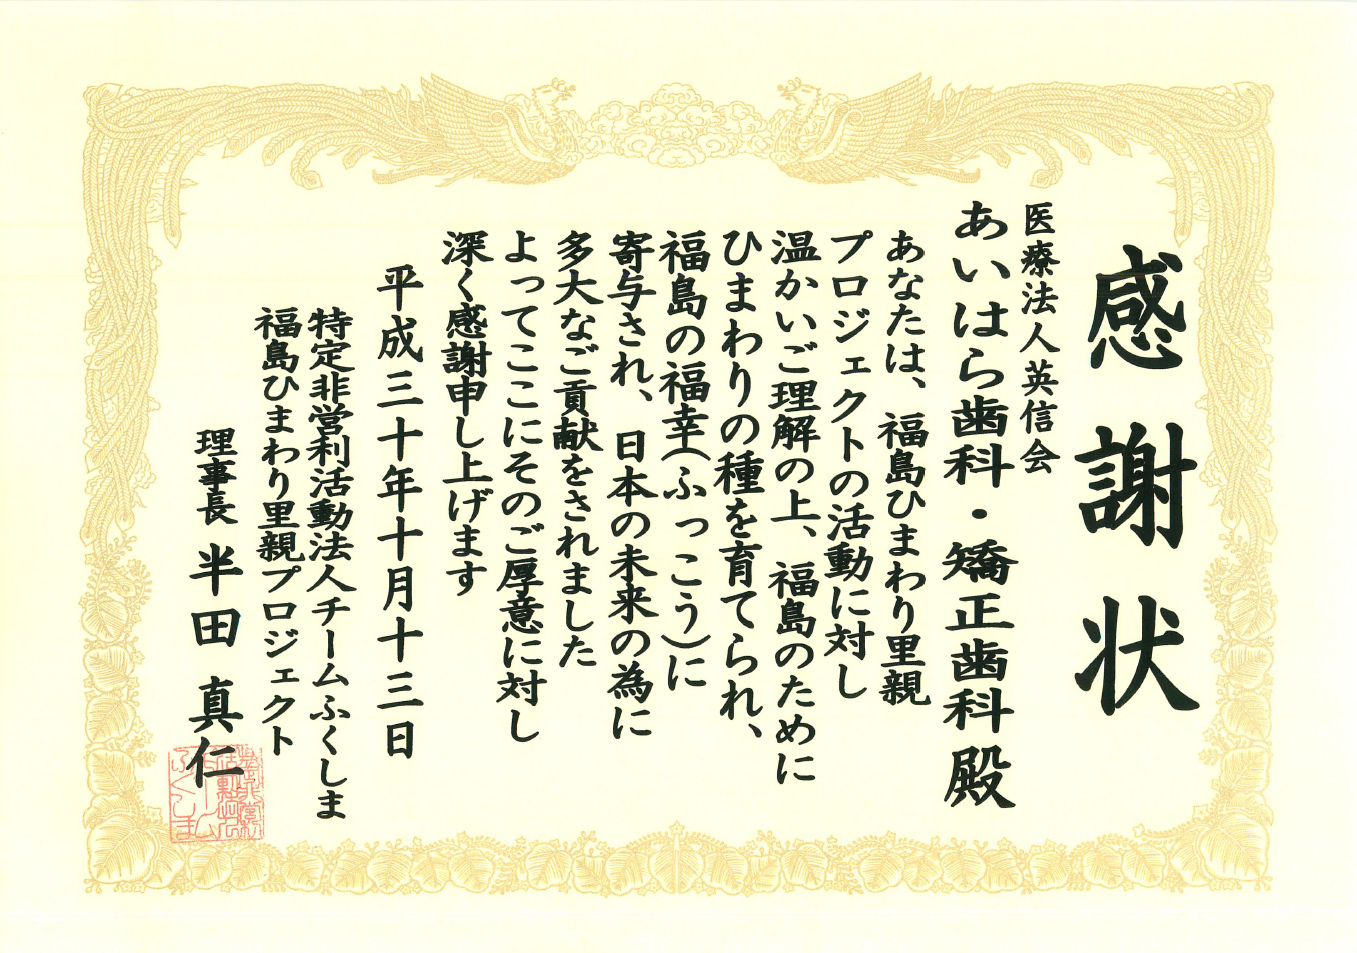 感謝状
医療法人英信会
あいはら歯科・矯正歯科殿
あなたは、福島ひまわり里親
プロジェクトの活動に対し
温かいご理解の上、福島のために
ひまわりの種を育てられ、
福島の福幸(ふっこう)に
寄与され、日本の未来の為に
多大なご貢献をされました
よってここにそのご厚意に対し
深く感謝申し上げます
平成三十年十月十三日
特定非営利活動法人チームふくしま
福島ひまわり里親プロジェクト
理事長 半田 真仁